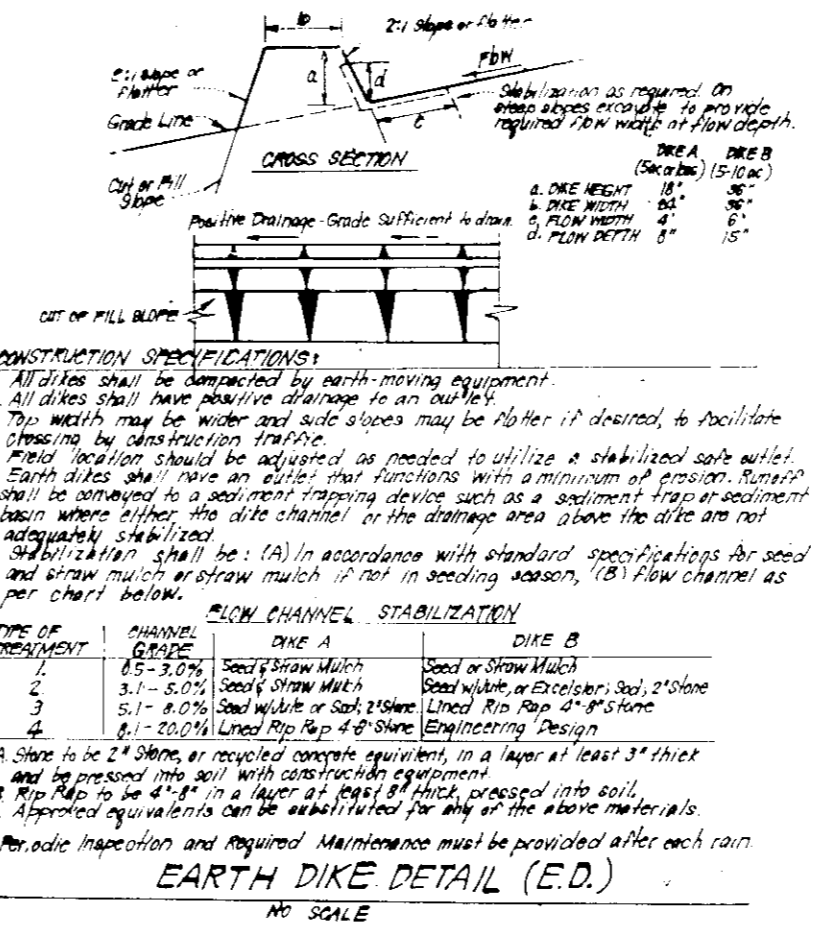 b
2:1 Slope or flatter
Flow
a
d
2:1 slope or
flatter
Stabilization as required. On
steep slopes excavate to provide
required flow width at flow depth.
Grade Line
c
CROSS SECTION
Cut or Fill
Slope
DIKE A DIKE B
(5ac or less) (5-10 ac)
a. DIKE HEIGHT 18" 36"
b. DIKE WIDTH 24" 36"
c. FLOW WIDTH 4' 6'
d. FLOW DEPTH 8" 15"
Positive Drainage-Grade Sufficient to drain.
CUT OR FILL SLOPE
CONSTRUCTION SPECIFICATIONS:
All dikes shall be compacted by earth-moving equipment.
All dikes shall have positive drainage to an outlet.
Top width may be wider and side slopes may be flatter if desired, to facilitate
crossing by construction traffic.
Field location should be adjusted as needed to utilize a stabilized safe outlet.
Earth dikes shall have an outlet that functions with a minimum of erosion. Runoff
shall be conveyed to a sediment trapping device such as a sediment trap or sediment
basin where either the dike channel or the drainage area above the dike are not
adequately stabilized.
Stabilization shall be: (A) In accordance with standard specifications for seed
and straw mulch or straw mulch if not in seeding season, (B) flow channel as
per chart below.
FLOW CHANNEL STABILIZATION
TYPE OF TREATMENT CHANNEL GRADE DIKE A DIKE B
1. 0.5-3.0% Seed & Straw Mulch Seed or Straw Mulch
2 3.1-5.0% Seed & Straw Mulch Seed w/Jute, or Excelsior; Sod; 2" Stone
3 5.1-8.0% Seed w/Jute or Sod; 2" Stone Lined Rip Rap 4"-8" Stone
4 8.1-20.0% Lined Rip Rap 4-8" Stone Engineering Design
A. Stone to be 2" Stone, or recycled concrete equivilent, in a layer at least 3" thick
and be pressed into soil with construction equipment.
B. Rip Rap to be 4"-8" in a layer at least 8" thick, pressed into soil.
. Approved equivalents can be substituted for any of the above materials.
Periodic Inspection and Required Maintenance must be provided after each rain.
EARTH DIKE DETAIL (E.D.)
NO SCALE